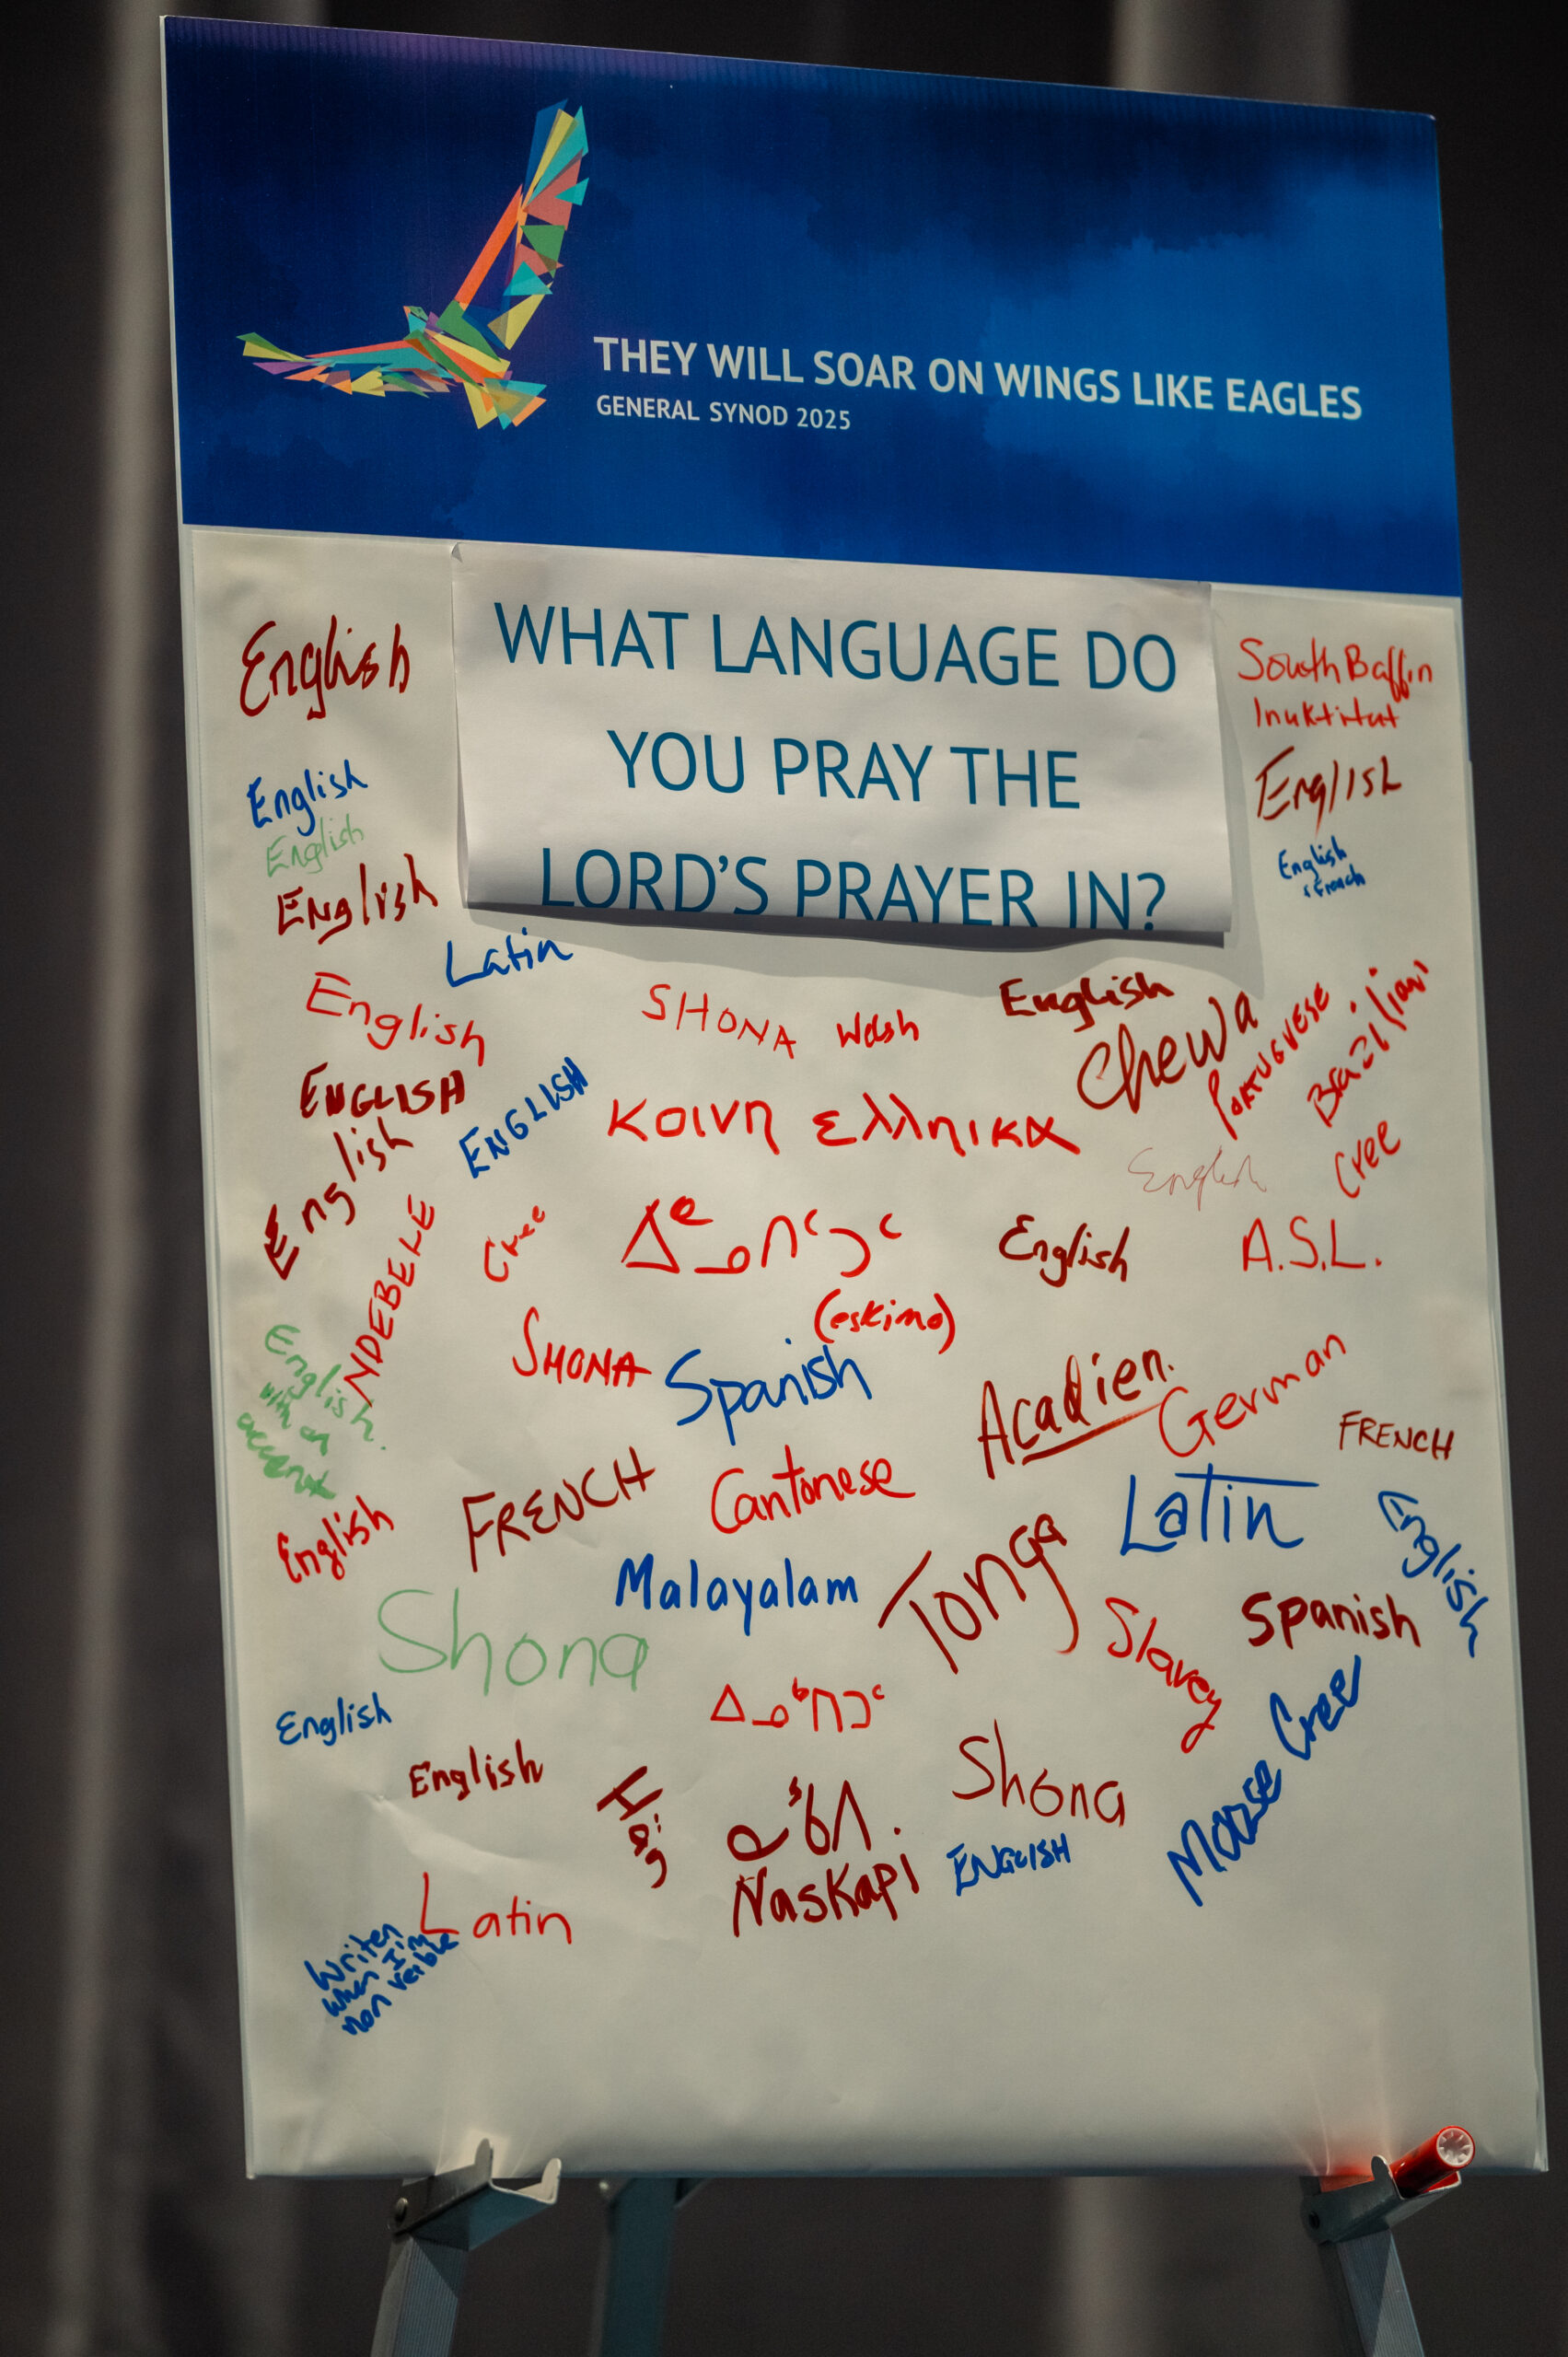 THEY WILL SOAR ON WINGS LIKE EAGLES
GENERAL SYNOD 2025
WHAT LANGUAGE DO
YOU PRAY THE
LORD'S PRAYER IN?
English
South Baffin
Inuktitut
English
English
English
English
& French
English
Latin
English
SHONA
Welsh
English
Chewa
PORTUGUESE.
Brazilian
ENGLISH
ENGLISH
κοινη ελληνικα
English
English
Cree
NDEBELE
Cree
ᐃᓄᒃᑎᑐᑦ
(eskimo)
English
A.S.L.
English
with an
accent
SHONA
Spanish
Acadien.
German
FRENCH
English
FRENCH
Cantonese
LATIN
English
Malayalam
Tonga
Slavey
Spanish
Shona
English
ᐃᓄᒃᑎᑐᑦ
Moose Cree
English
Shona
Naskapi
ENGLISH
Latin
Writen
when I'm
non verble